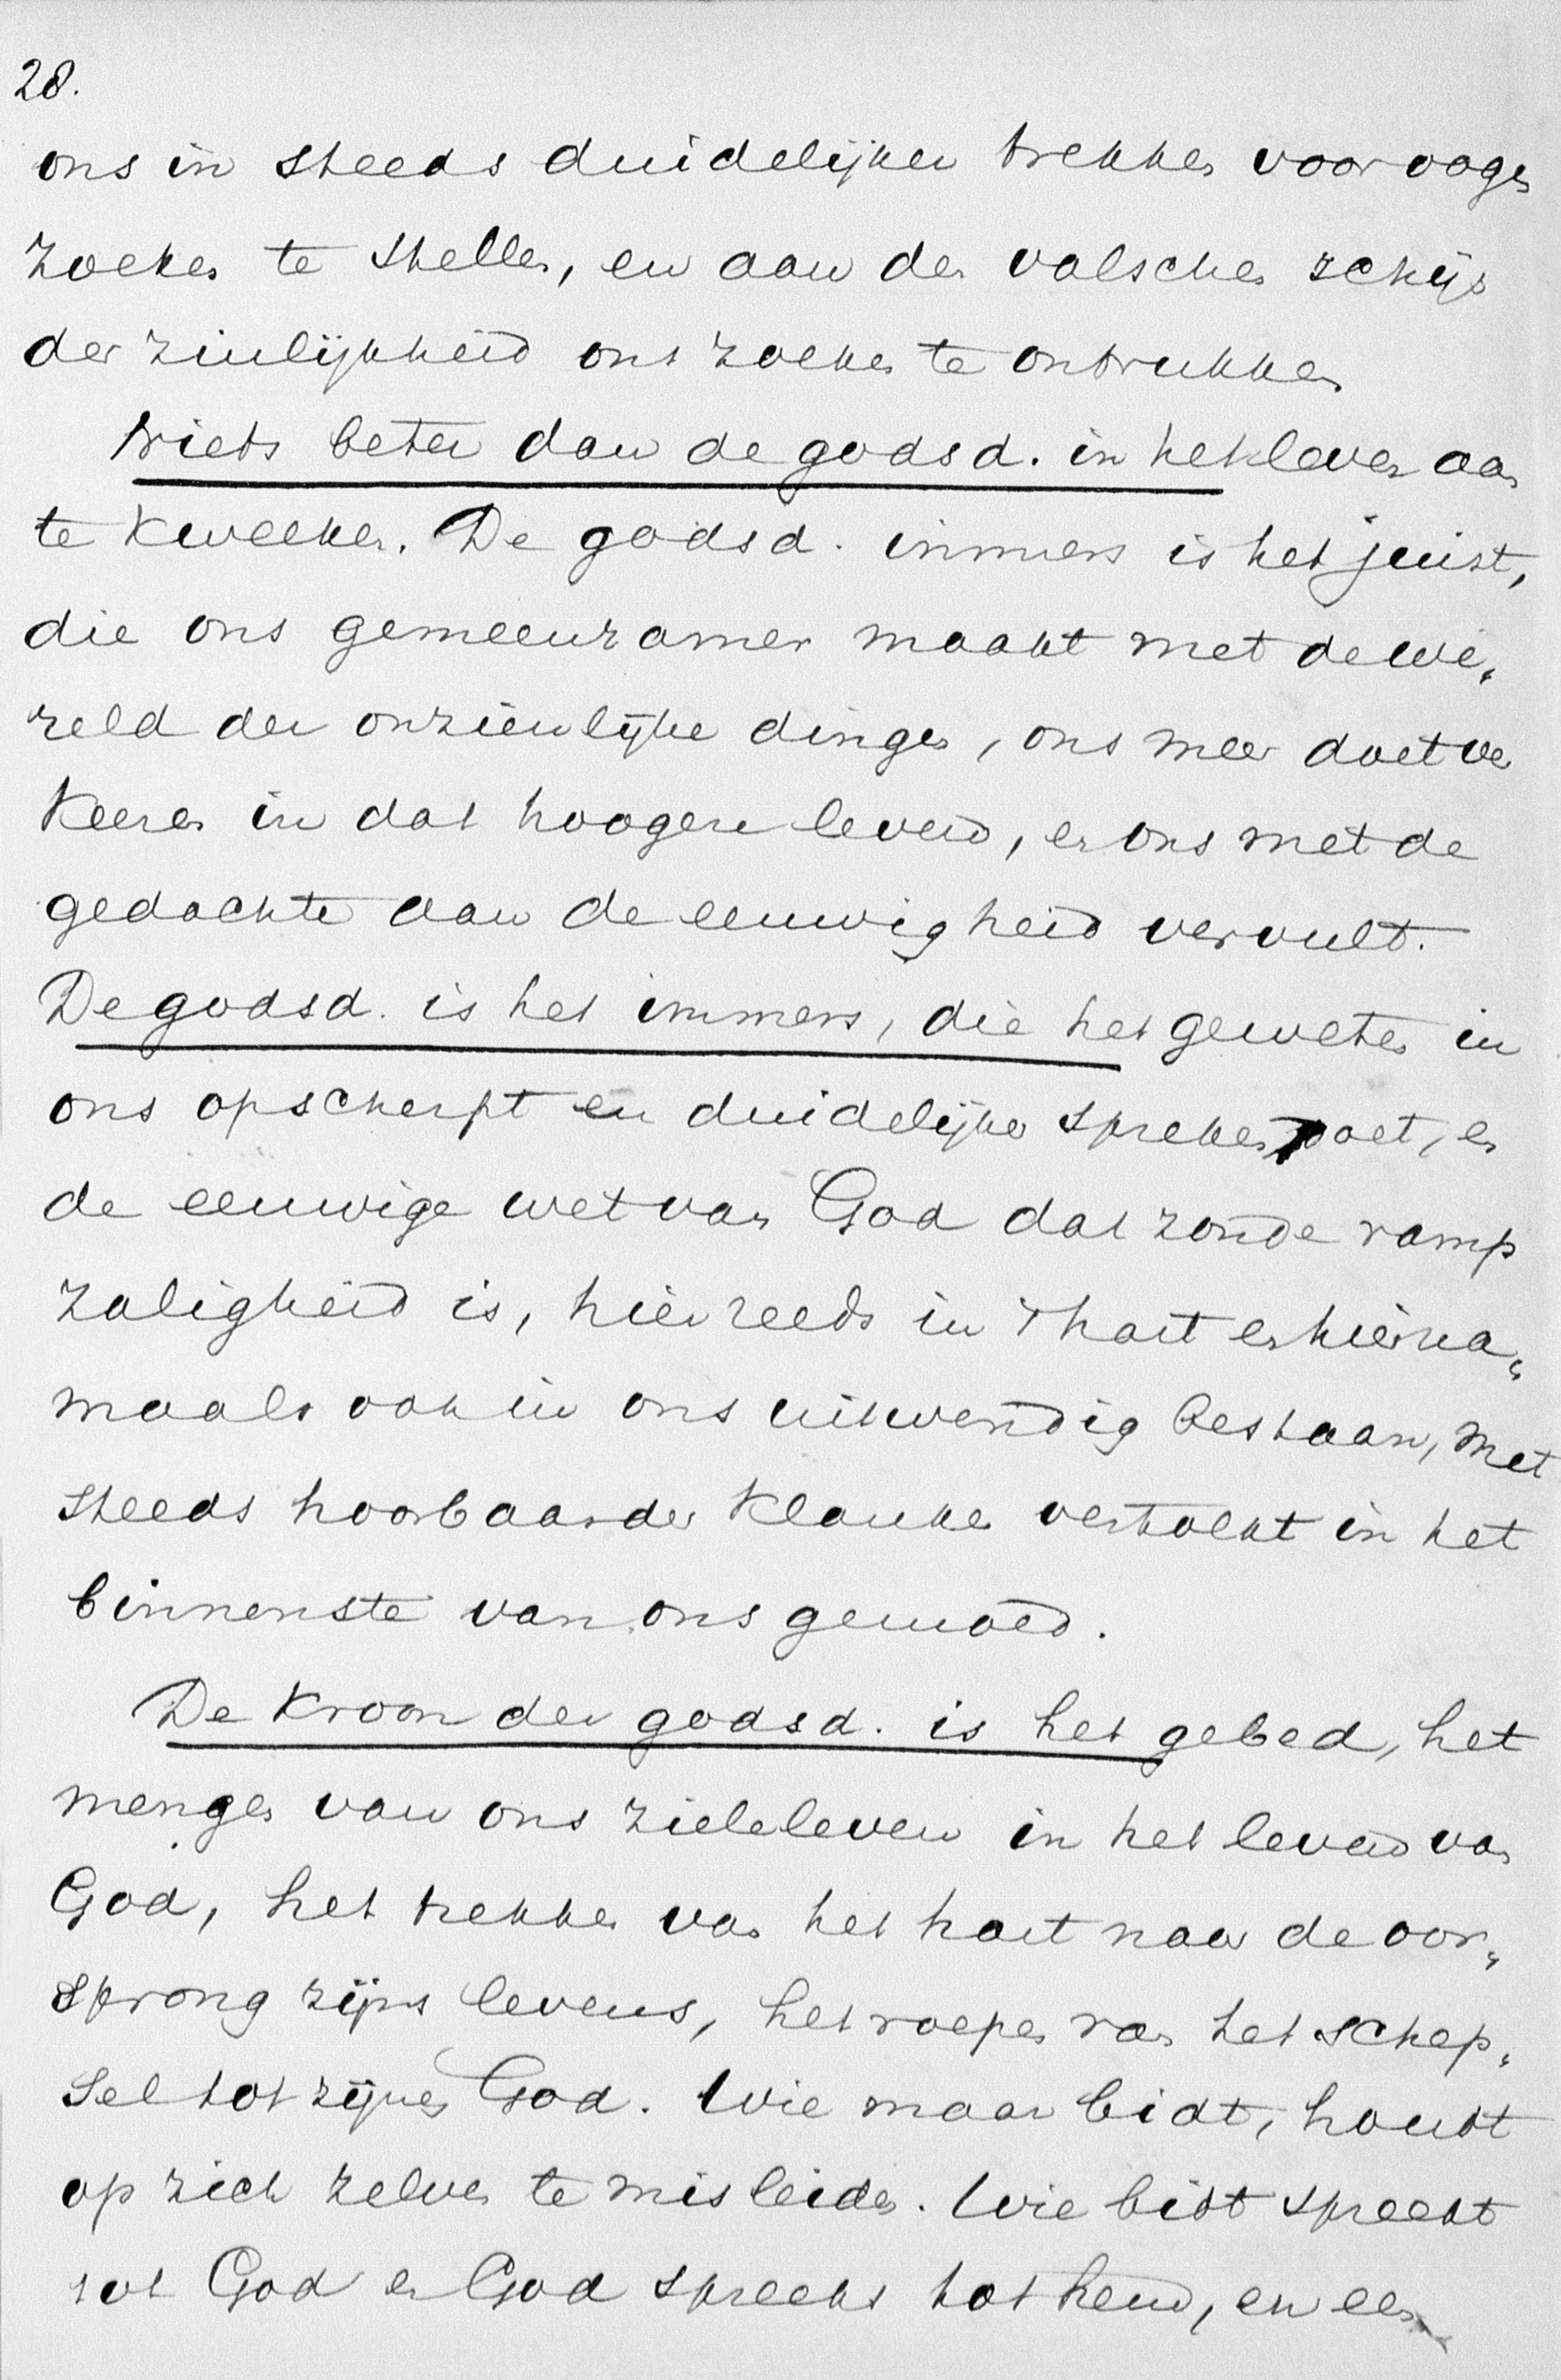 28.
ons in steeds duidelijker trekken voor oogen
zoeken te stellen, en aan den valschen schijn
der zinlijkheid ons zoeken te ontrukken
Niets beter dan de godsd. in het leven aan
te kweeken. De godsd. immers is het juist,
die ons gemeenzamer maakt met de we„
reld der onzienlijke dingen, ons meer doet ver
keeren in dat hoogere leven, en ons met de
gedachte aan de eeuwigheid vervult.
De godsd. is het immers, die het geweten in
ons opscherpt en duidelijker spreken doet, en
de eeuwige wet van God dat zonde ramp
zaligheid is, hier reeds in 't hart en hierna„
maals ook in ons uitwendig bestaan, met
steeds hoorbaarder klanken vertolkt in het
binnenste van ons gemoed.
De kroon der godsd. is het gebed, het
mengen van ons zieleleven in het leven van
God, het trekken van het hart naar de oor„
sprong zijns levens, het roepen van het schep„
sel tot zijnen God. Wie maar bidt, houdt
op zich zelven te misleiden. Wie bidt spreekt
tot God en God spreekt tot hem, en een